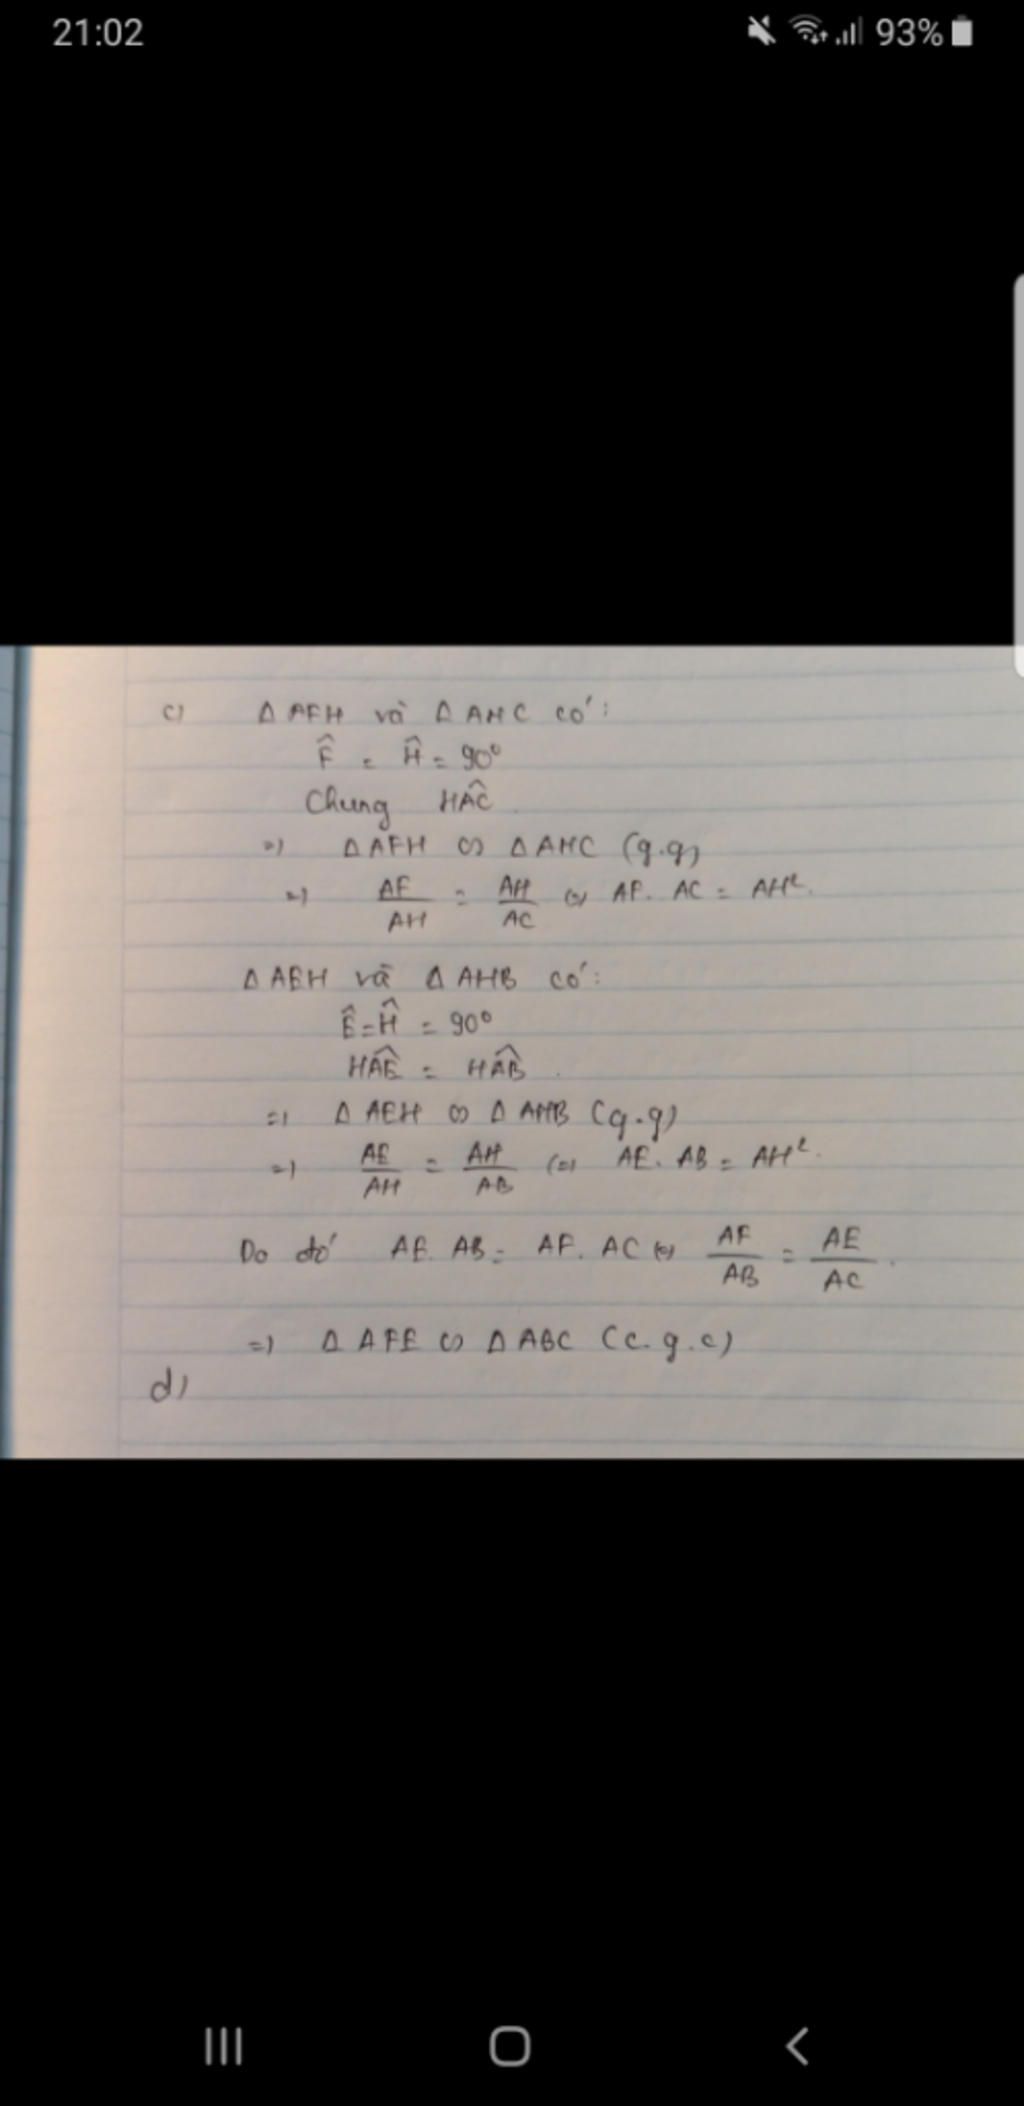 21:02 93%
c) Δ AFH và Δ AHC có:
F̂ = Ĥ = 90°
Chung HÂC
=) Δ AFH ∽ Δ AHC (g.g)
=) AF/AH = AH/AC (=) AF. AC = AH².
Δ AEH và Δ AHB có:
Ê = Ĥ = 90°
HÂE = HÂB.
=) Δ AEH ∽ Δ AHB (g.g)
=) AE/AH = AH/AB (=) AE. AB = AH².
Do đó AE. AB = AF. AC (=) AF/AB = AE/AC.
=) Δ AFE ∽ Δ ABC (c.g.c)
d)